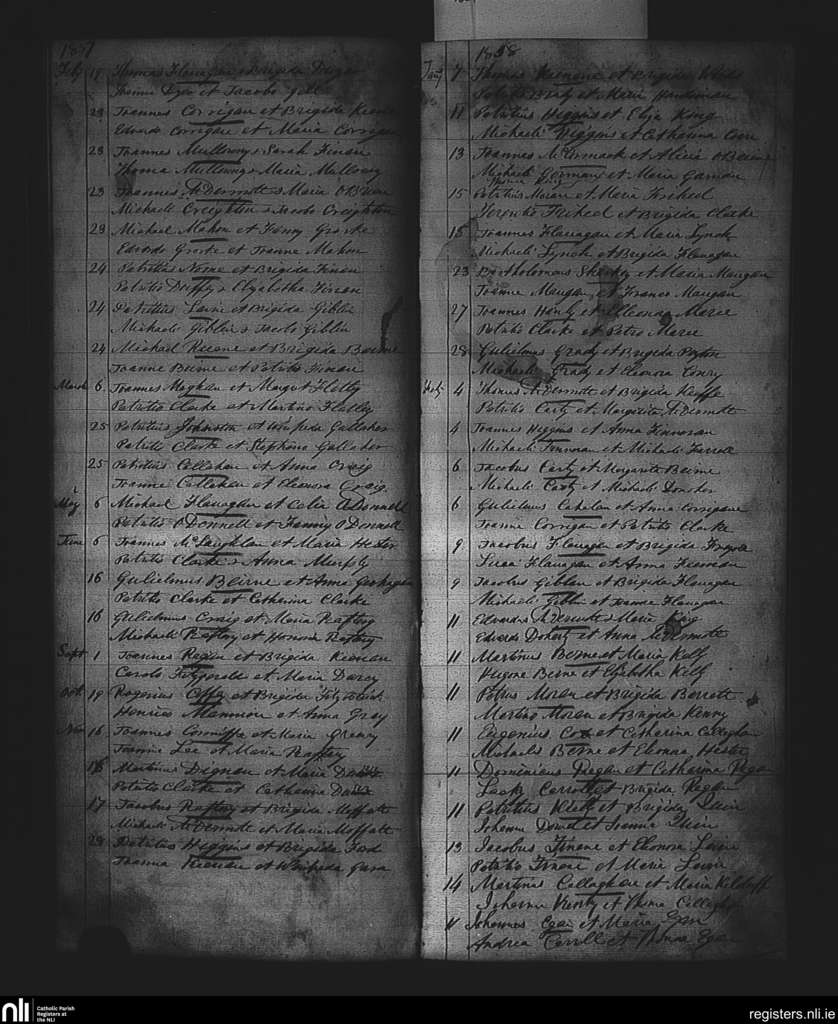 1857
Feby 17 Thomas Flanagan & Brigida Dwyer
Thoma Dyer et Jacobo
23 Joannes Corrigan et Brigida Keena
Edwardo Corrigan et Maria Corrigan
23 Joannes Mullowny & Sarah Finan
Thoma Mullowny & Maria Mullowny
23 Joannes McDermott & Maria O'Brien
Michaele Creighton & Jacobo Creighton
23 Michael Mahon et Fanny Groarke
Edwardo Groarke et Joanne Mahon
24 Patritius Noone et Brigida Finan
Patritio Duffy & Elizabetha Finan
24 Patritius Lavin et Brigida Giblin
Michaele Giblin & Jacobo Giblin
24 Michael Keene et Brigida Beirne
Joanne Beirne et Patritio Finan
March 6 Joannes Meghan et Margt Flatly
Patritio Clarke et Martino Flatley
25 Patritius Johnston et Winifreda Gallaher
Patritio Clarke et Stephano Gallaher
25 Patritius Callahan et Anna Craig
Joanne Callahan et Eleanora Craig
May 6 Michael Flanaghan et Celia O'Donnell
Patritio O'Donnell et Fanny O'Donnell
June 5 Joannes McLaughlan et Maria Hester
Patritio Clarke & Anna Murphy
16 Gulielmus Beirne et Anna
Patritio Clarke et Catharina Clarke
16 Gulielmus Craig et Maria Raftery
Michaele Raftery et Honora Raftery
Sept 1 Joannes Regan et Brigida Keenan
Carolo Fitzgerald et Maria Darcy
Oct 19 Rogerius Coffy et Brigida Fitzpatrick
Henrico Mannion et Anna Gray
Nov 16 Joannes et Maria Greavy
Joanne Lee et Maria Raftery
16 Martinus Dignan et Maria
Patritio Clarke et Catharina
17 Jacobus Raftery et Brigida Moffatt
Michaele McDermott et Maria Moffatt
28 Patritius Higgins et Brigida Ford
Joanna Keenan et Winifreda Gara
1858
Jany 7 Thomas et Brigida
Brady et Maria Hardiman
11 Patritius Higgins et Eliza King
Michaele Higgins et Catharina
13 Joannes McCormack et Alicia O'Beirne
Michaele Gorman et Maria
15 Patritius Moran et Maria Fecheed
Terentio Fecheed et Brigida Clarke
15 Joannes Flanagan et Maria Lynch
Michaele Lynch et Brigida Flanagan
23 Bartholomeus Sharkey et Maria Maugan
Joanne Maugan et Franco Maugan
27 Joannes Hanly et Elleonora Maree
Patritio Clarke et Petro Maree
28 Gulielmus Grady et Brigida Peyton
Michaele Grady et Elenora Conry
Feby 4 Thomas McDermott et Brigida Keeffe
Patritio Carty et Margarita McDermott
4 Joannes Higgins et Anna Finnoran
Michaele Finnoran et Michaele Farrell
6 Jacobus Carty et Margarita Beirne
Michaele Carty et Michaele
6 Gulielmus et Anna Corrigan
Joanne Corrigan et Patritio Clarke
9 Jacobus Flanagan et Brigida
Flanagan et Anna
9 Jacobus Giblin et Brigida Flanagan
Michaele Giblin et Joanne Flanagan
11 Edwardus McDermott & Maria
Edwardo Doherty et Anna McDermott
11 Martinus Berne et Maria Kelly
Eugene Berne et Elizabetha Kelly
11 Petrus Moran et Brigida Barrett
Martino Moran et Brigida Kenny
11 Eugenius Cox et Catharina Callaghan
Michaele Berne et Eleonora Hester
11 Dominicus Regan et Catharina Regan
Lacky Carroll et Brigida Regan
11 Patritius et Brigida Quin
Johanne Dowd et Joanna Quin
13 Jacobus Finane et Elenora Lavin
Patritio Finane et Maria Lavin
14 Martinus Callaghan et Maria Kilduff
Johanne et Thoma Callaghan
11 Johannes Egan et Maria Egan
Andrea Carroll et Thoma Egan
nli
Catholic Parish
Registers at
the NLI
registers.nli.ie